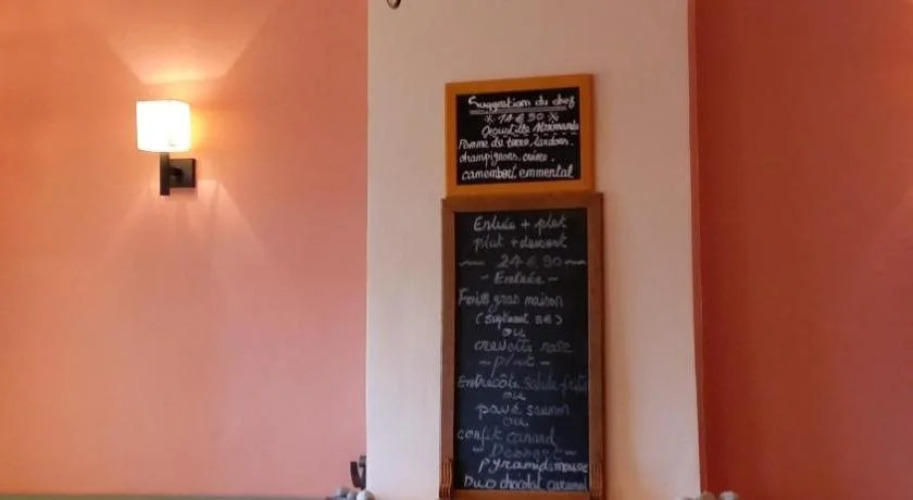 Suggestion du chef
* 14 € 90 *
Croustille Normande
Pomme de terre, lardons.
champignons. crème.
camembert. emmental
Entrée + plat
plat + dessert
24 € 90
- Entrée -
Foies gras maison
(suplment 5€)
ou
crevette rose
- plat -
Entrecôte. salade frite
ou
pavé saumon
ou
confit canard
- Dessert -
Pyramid mousse
Duo chocolat caramel